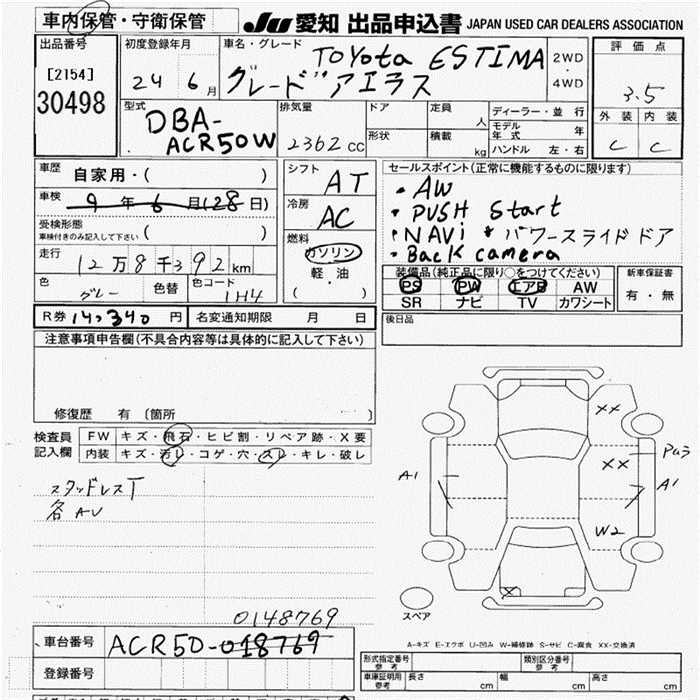 車内保管・守衛保管
JU 愛知 出品申込書 JAPAN USED CAR DEALERS ASSOCIATION
出品番号
[2154]
30498
初度登録年月
24 6月
車名・グレード
TOYota ESTIMA
グレード"アエラス
2WD
・
4WD
評価点
3.5
外装 内装
C C
型式
DBA-
ACR50W
排気量
2362 CC
ドア
形状
定員
人
積載
kg
ディーラー・並行
モデル年式 年
ハンドル 左・右
車歴
自家用・( )
車検
9年6月(28日)
受検形態
車検付きのみ記入して下さい ( )
走行
12万8千392km
色
グレー
色替
色コード
1H4
シフト
AT
冷房
AC
燃料
ガソリン
軽・油
( )
セールスポイント(正常に機能するものに限ります)
・AW
・PUSH Start
・NAVi * パワースライドドア
・Back camera
装備品(純正品に限り○をつけてください)
PS PW エアB AW
SR ナビ TV カワシート
新車保証書
有・無
後日品
R券 14,340円 名変通知期限 月 日
注意事項申告欄(不具合内容等は具体的に記入して下さい)
修復歴 有〔箇所 〕
検査員
記入欄
FW キズ・飛石・ヒビ割・リペア跡・X要
内装 キズ・汚レ・コゲ・穴・スレ・キレ・破レ
スタッドレスT
各AU
XX
XX
Pa3
A1
A1
W2
X
スペア
0148769
車台番号
ACR50-018769
登録番号
A-キズ E-エクボ U-凹み W-補修跡 S-サビ C-腐食 XX-交換済
形式指定番号
参考
類別区分番号
参考
車庫証明用
参考
長さ cm
幅 cm
高さ cm